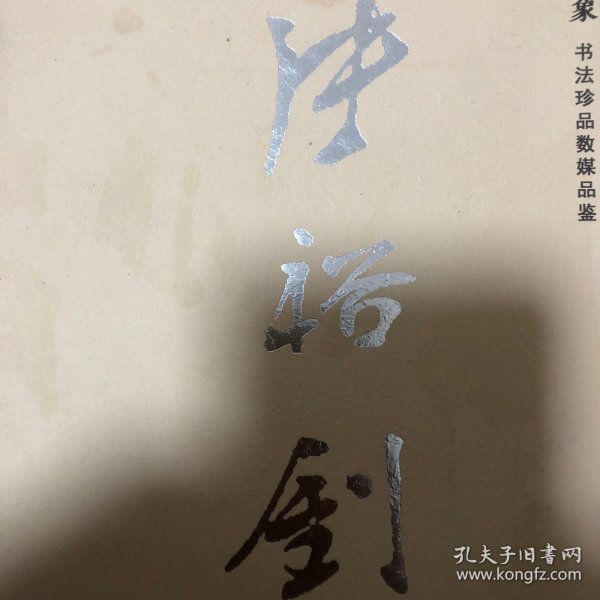 象
书法珍品数媒品鉴
张裕钊
孔夫子旧书网
www.kongfz.com